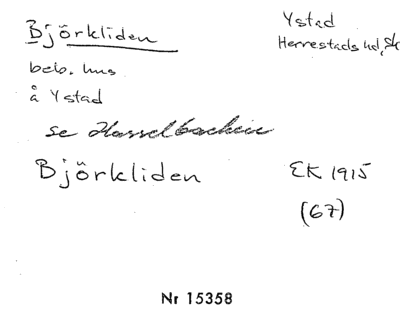 Björkliden Ystad
Herrestads hd, Sk
beb. hus
å Ystad
se Hasselbacken
Björkliden EK 1915
(67)
Nr 15358